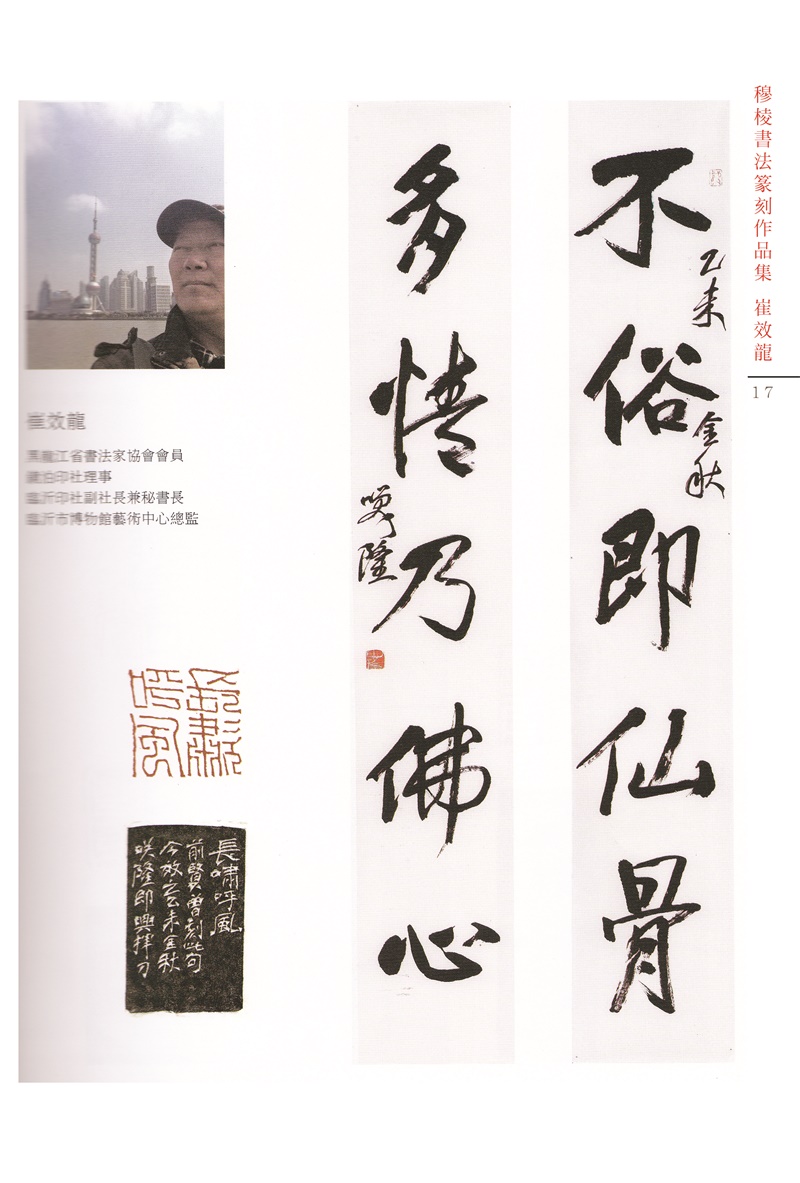 穆棱書法篆刻作品集 崔效龍
17
不俗即仙骨
乙未
金秋
多情乃佛心
崔效龍
黑龍江省書法家協會會員
印社理事
臨沂印社副社長兼秘書長
臨沂市博物館藝術中心總監
長嘯呼風
長嘯呼風
前賢曾刻此句
今放之乙未金秋
咲隆即興揮刀